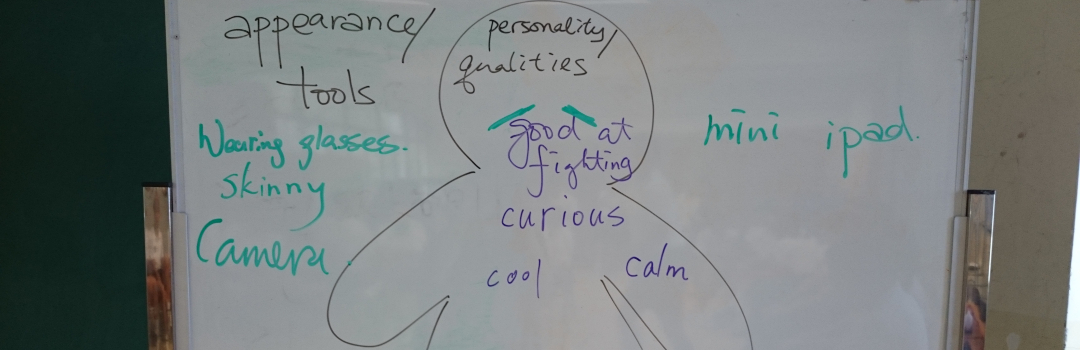 appearance/
tools
personality/
qualities
Wearing glasses.
skinny
Camera.
good at
fighting
curious
cool
calm
mini ipad.